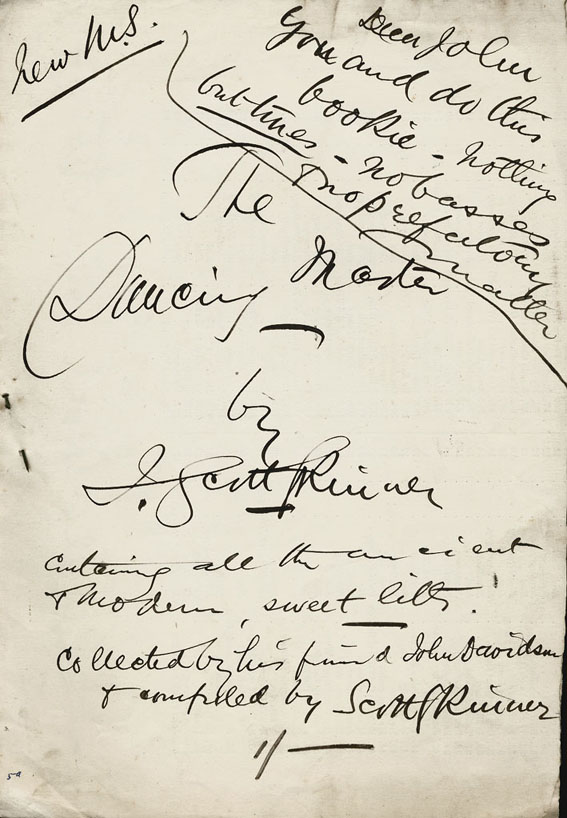 New M.S.
Dear John
You and do this
bookie - nothing
but tunes - no basses
no prefatory
matter
The
Dancing Master
by
J. Scott Skinner
containing all the ancient
& modern, sweet lilts.
Collected by his friend John Davidson
& compiled by Scott Skinner
1/-
5a